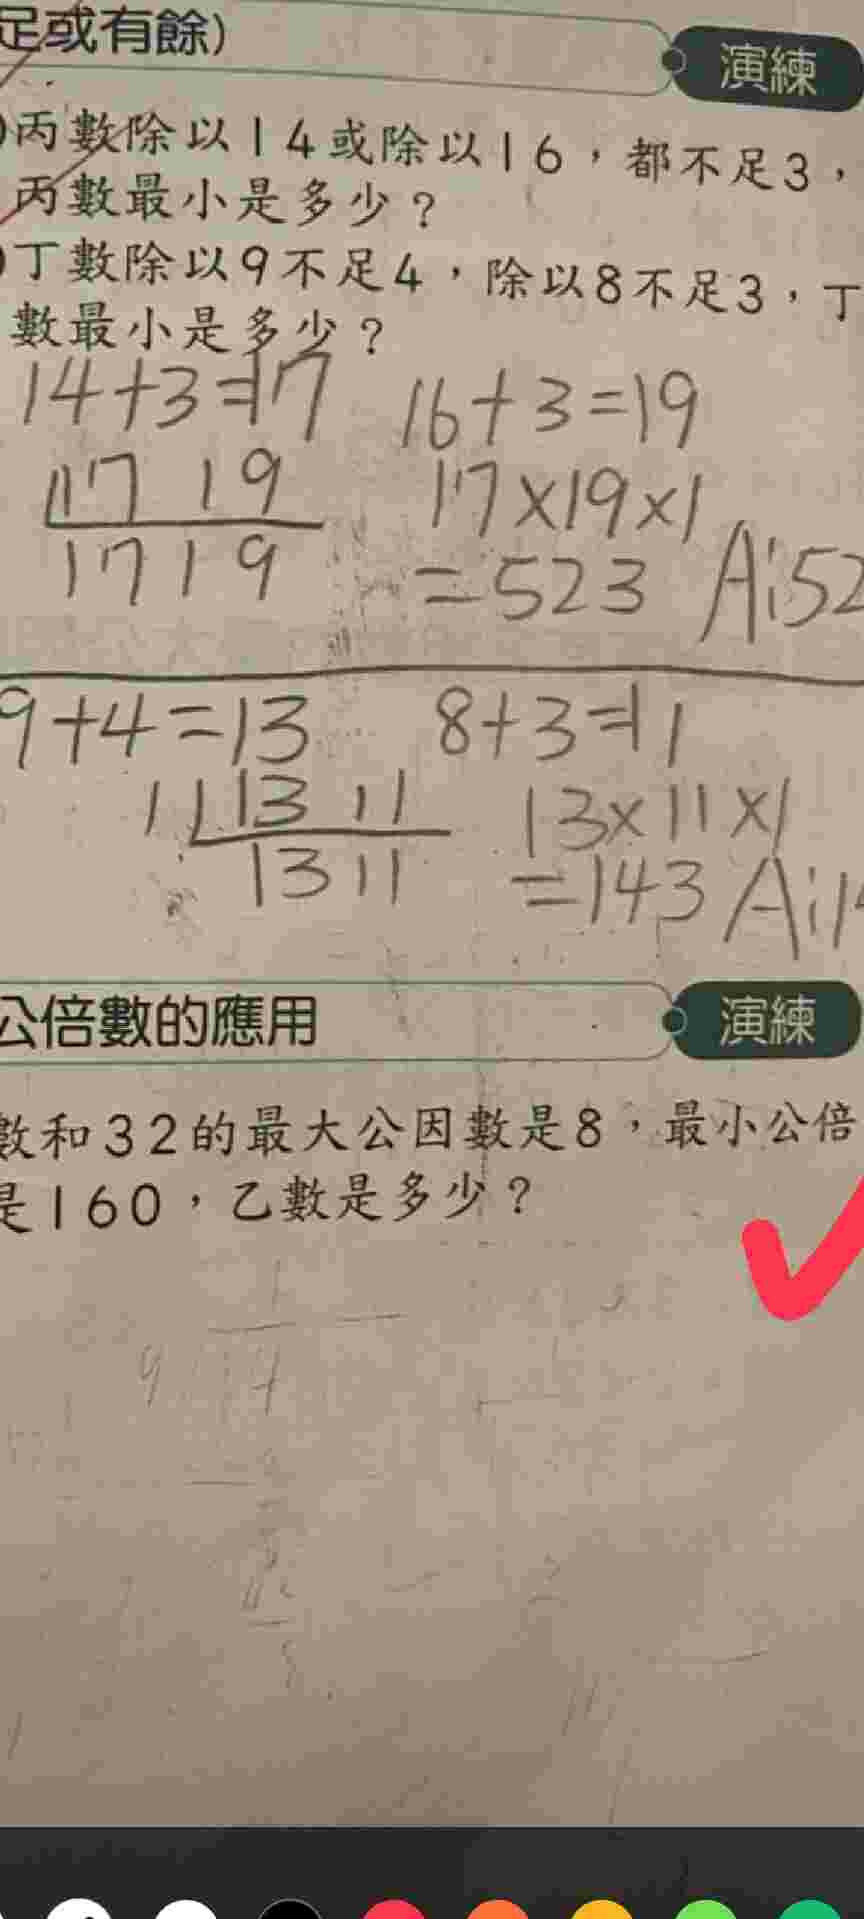 足或有餘)
演練
)丙數除以14或除以16，都不足3，
丙數最小是多少？
)丁數除以9不足4，除以8不足3，丁
數最小是多少？
14+3=17 16+3=19
1 17 19 17×19×1
17 19 =523 A:52
9+4=13 8+3=11
1 13 11 13×11×1
13 11 =143 A:14
公倍數的應用
演練
數和32的最大公因數是8，最小公倍
是160，乙數是多少？